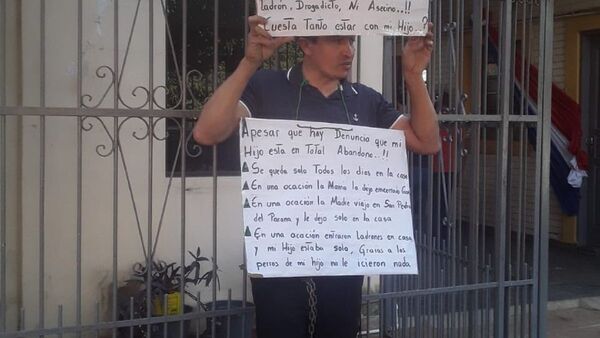 Ladrón, Drogadicto, Ni Asecino..!!
Cuesta Tanto estar con mi Hijo...?
Apesar que hay Denuncia que mi
Hijo esta en Total Abandono..!!
Se queda solo Todos los dias en la casa
En una ocación la Mama lo dejo
En una ocación la Madre viajo en San Pedro
del Parana y le dejo solo en la casa
En una ocación entraron Ladrones en casa
y mi Hijo estaba solo, Gracias a los
perros de mi hijo no le icieron nada